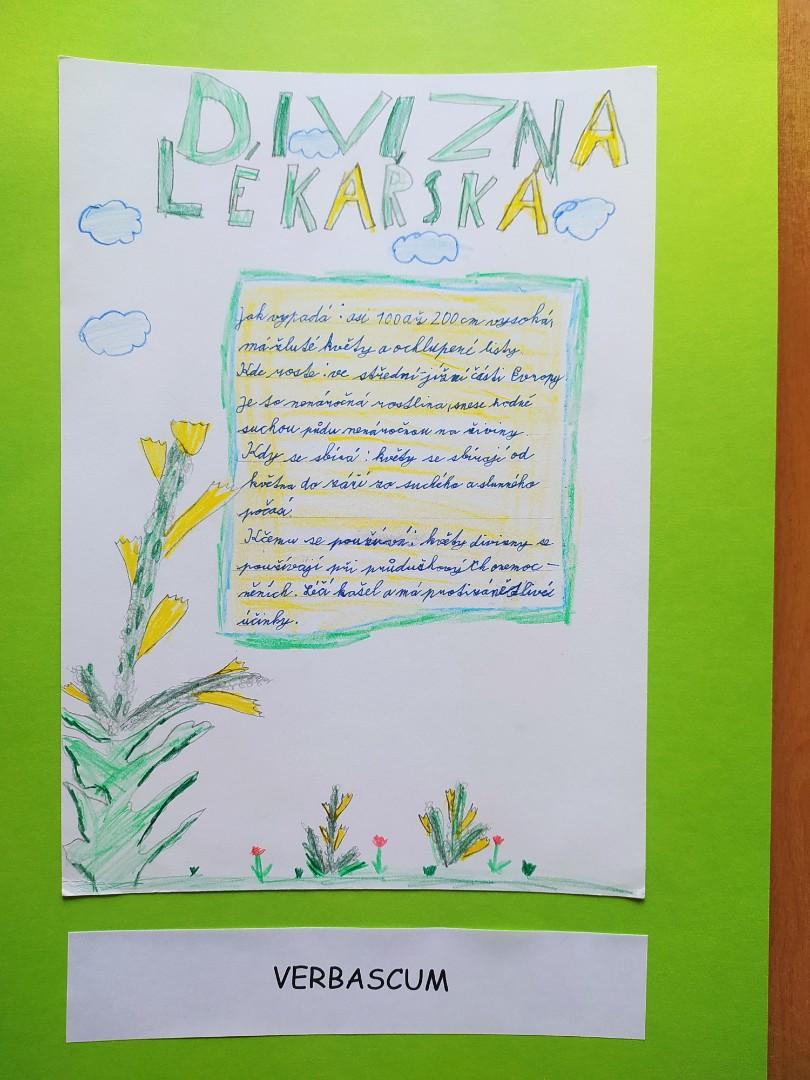 DIVIZNA
LÉKAŘSKÁ
Jak vypadá: asi 100 až 200 cm vysoká,
má žluté květy a ochlupené listy.
Kde roste: ve střední-jižní části Evropy.
Je to nenáročná rostlina, snese hodně
suchou půdu nenáročnou na živiny.
Kdy se sbírá: květy se sbírají od
května do září za suchého a slunného
počasí.
K čemu se používá: květy divizny se
používají při průduškový ch onemoc-
něních. Léčí kašel a má protizánětlivé
účinky.
VERBASCUM